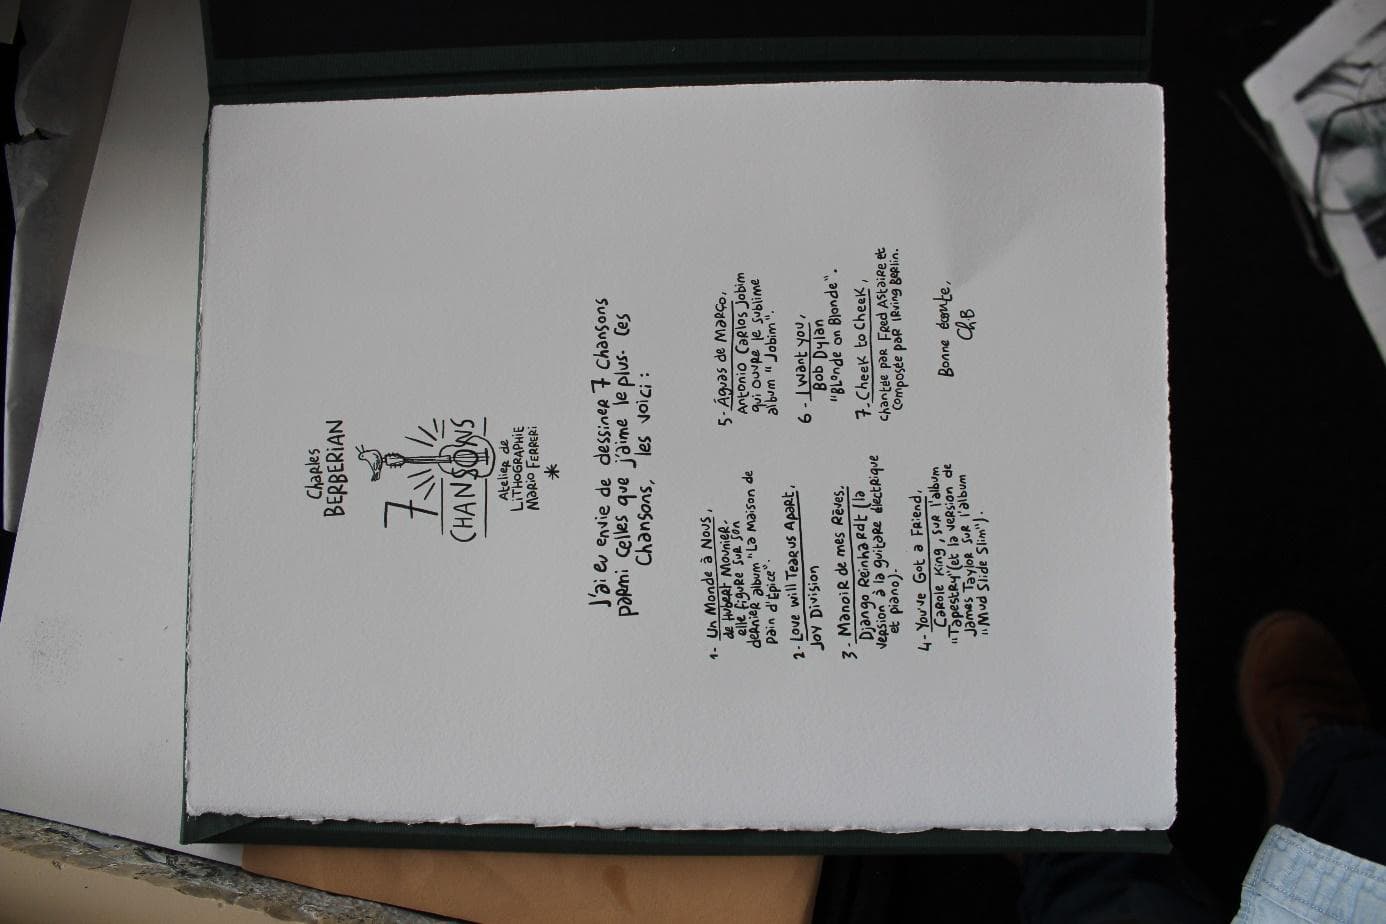 Charles
BERBERIAN
7
CHANSONS
Atelier de
LITHOGRAPHIE
MARIO FERRERI
*
J'ai eu envie de dessiner 7 chansons
parmi celles que j'aime le plus. Ces
chansons, les voici :
1- Un Monde à Nous,
de Hubert Mounier.
elle figure sur son
dernier album "La Maison de
pain d'Epice".
2- Love will Tear us Apart,
Joy Division
3- Manoir de mes Rêves,
Django Reinhardt (la
version à la guitare électrique
et piano).
4- You've Got a Friend,
Carole King, sur l'album
"Tapestry" (et la version de
James Taylor sur l'album
"Mud Slide Slim").
5- Águas de Março,
Antonio Carlos Jobim
qui ouvre le sublime
album "Jobim".
6- I want you,
Bob Dylan
"Blonde on Blonde".
7- Cheek to Cheek,
chantée par Fred Astaire et
composée par Irving Berlin.
Bonne écoute,
Ch.B